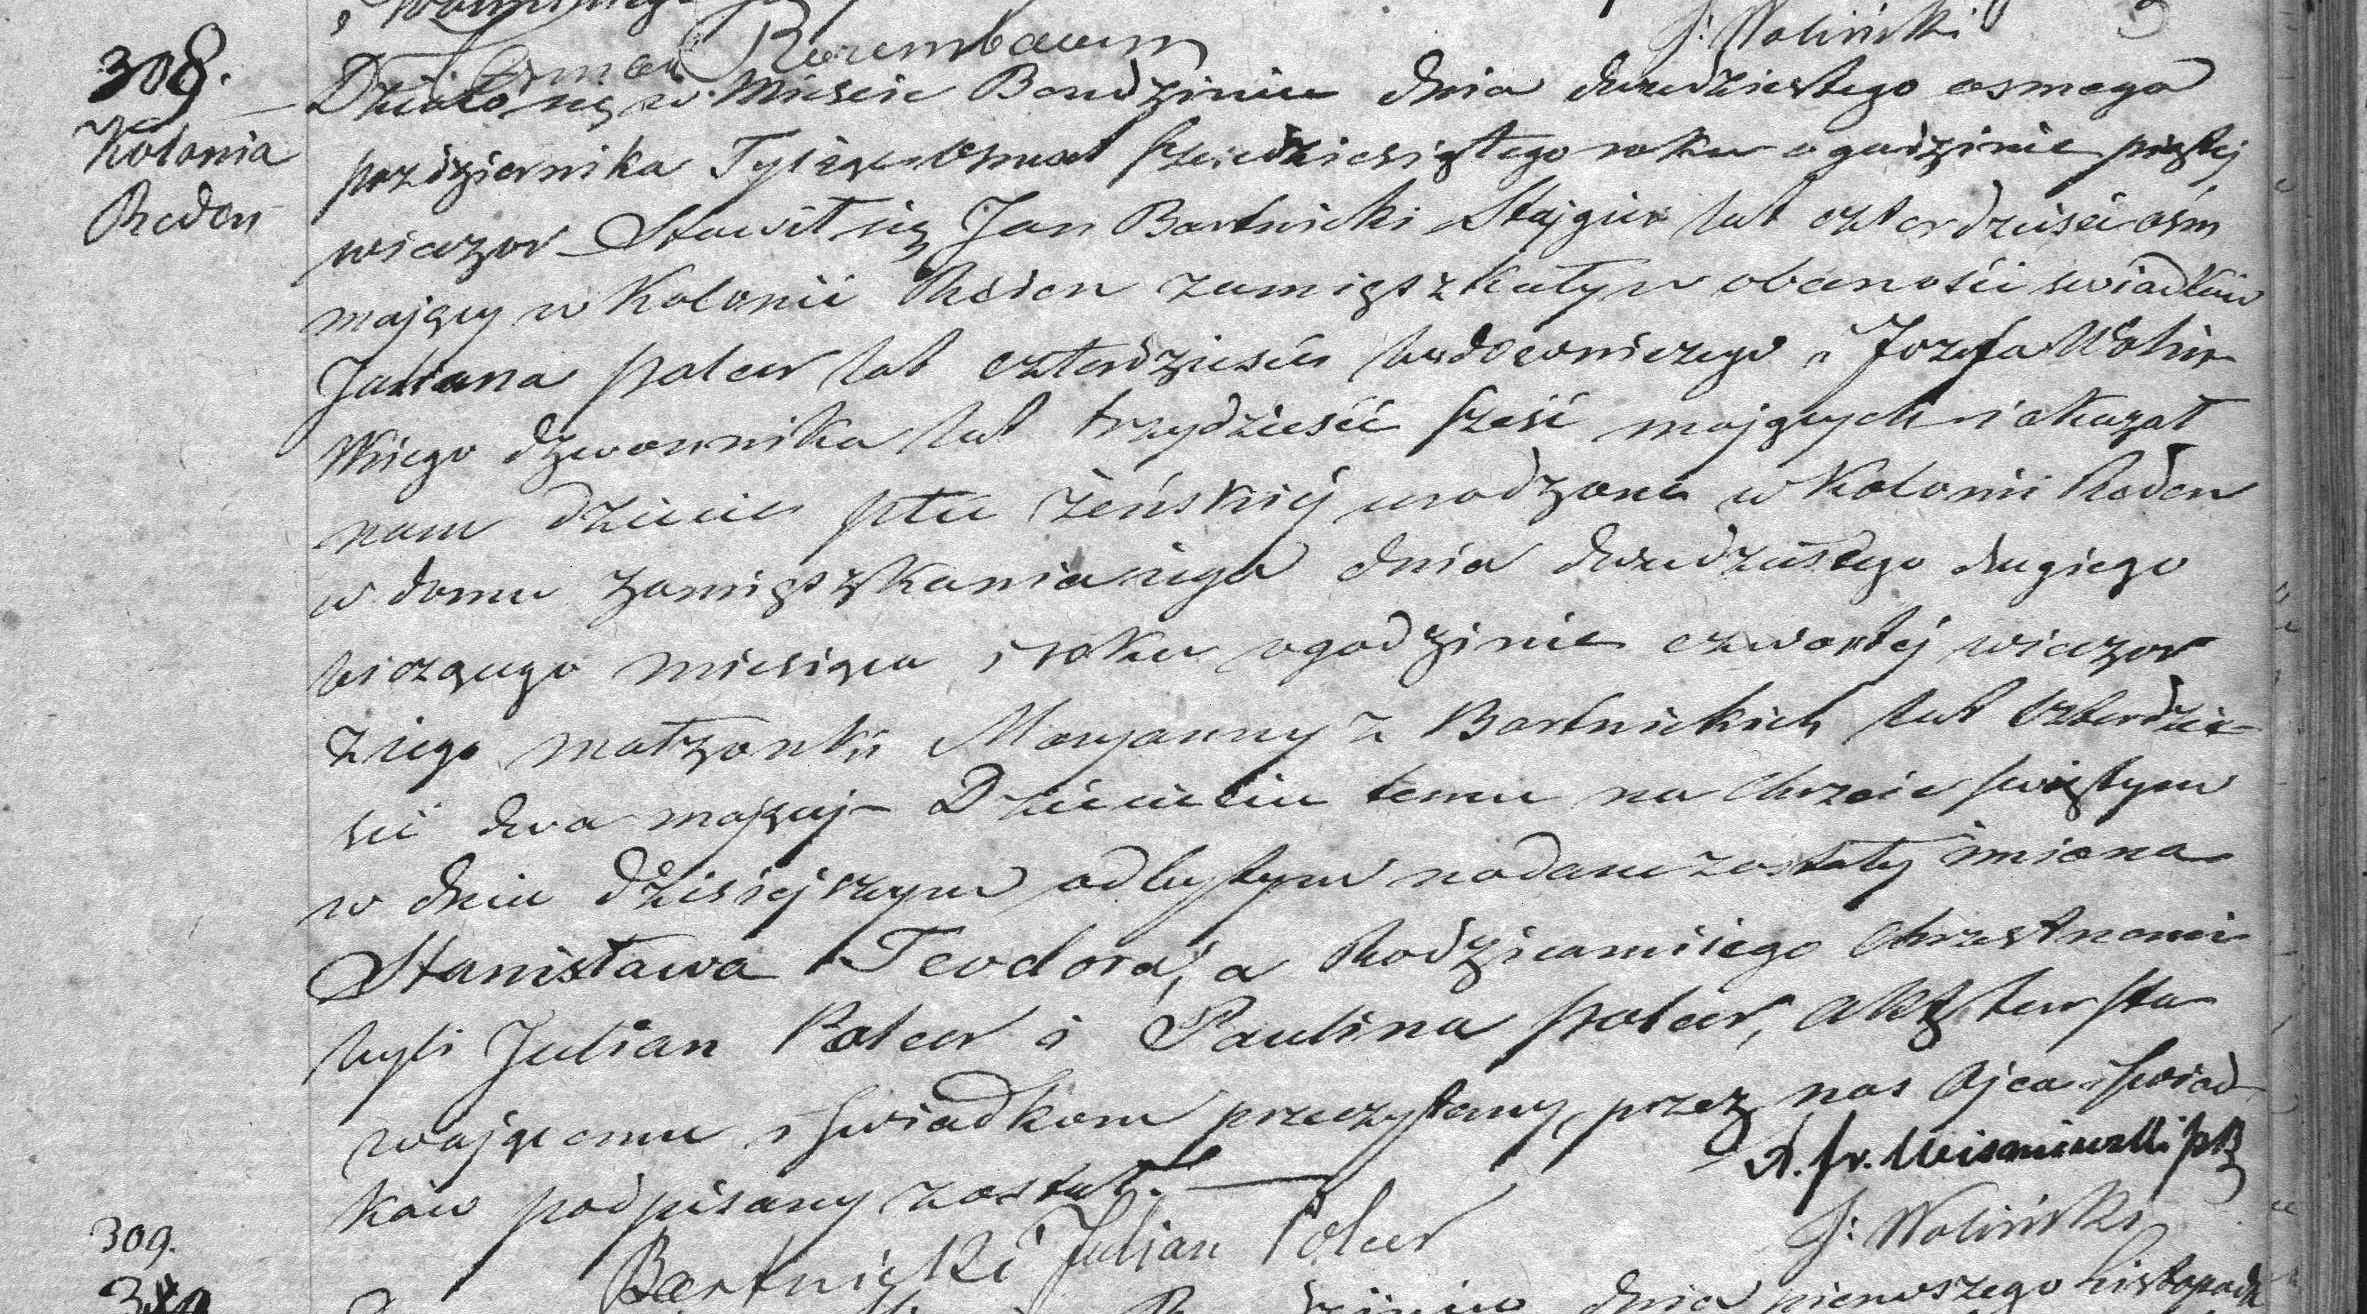 J: Woliński
Rozembaum
308.
Kolonia
Reden
Działo się w Mieście Bendzinie dnia dwudziestego osmego
pazdziernika Tysiąc osmset sześcdziesiątego roku o godzinie piątej
wieczor Stawił się Jan Bartnicki Sztejgier lat czterdzieści ośm
mający w Kolonii Reden zamięszkały w obecności swiadków
Juliana Polcer lat czterdzieści i Jozefa Woliń-
skiego dzwonnika lat trzydzieści sześć mających i okazał
nam dziecie płci żeńskiej urodzone w Kolonii Reden
w domu zamięszkania iego dnia dwudziestego drugiego
bieżącego miesiąca i roku o godzinie czwartej wieczor
z iego małżonki Maryanny z Bartnickich lat czterdzie-
ści dwa mającej Dziecieciu temu na Chrzcie świętym
w dniu dzisiejszym odbytym nadane zostały imiona
Stanisława Teodora, a Rodzicami iego Chrzestnemi
byli Julian Polcer i Paulina Polcer, Akt ten sta-
wającemu i świadkom przeczytany, przez nas Ojca i świad-
ków podpisany został.
J: Woliński
Bartnicki Julian Polcer
309.
dnia pierwszego Listopada